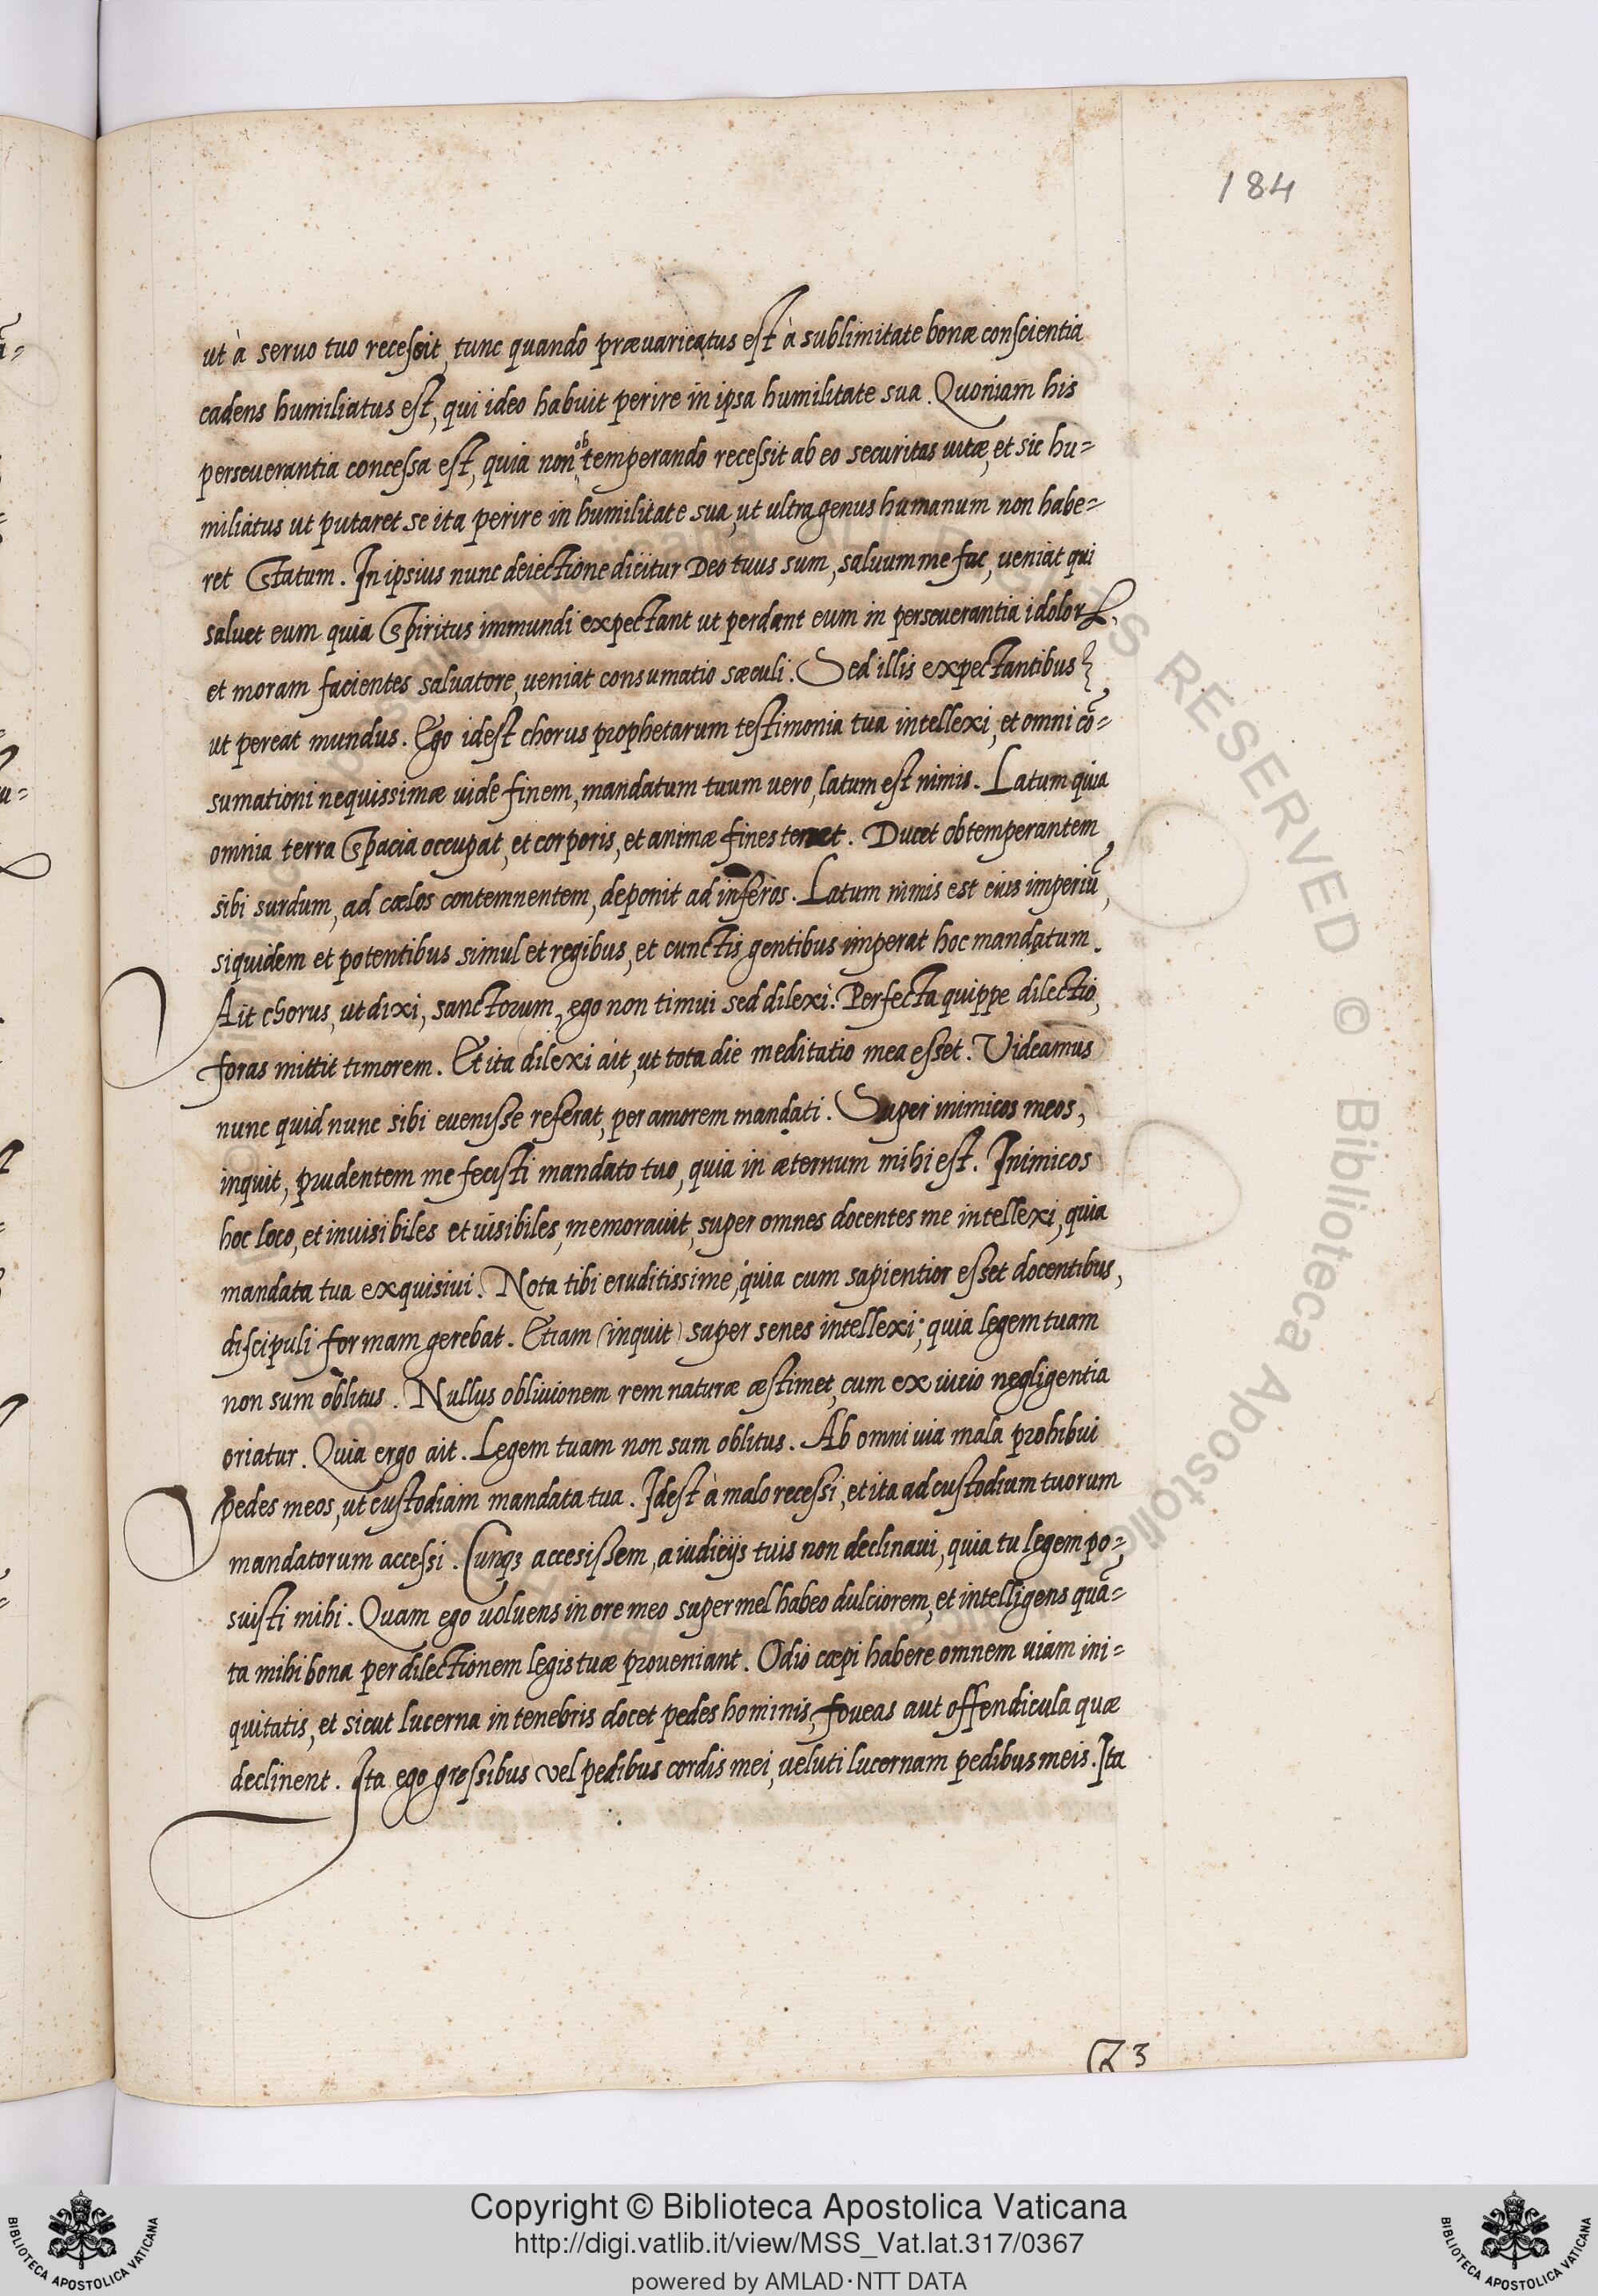 184
ut à seruo tuo recessit, tunc quando præuaricatus est à sublimitate bonæ conscientia
cadens humiliatus est, qui ideo habuit perire in ipsa humilitate sua. Quoniam his
perseuerantia concessa est, quia non obtemperando recessit ab eo securitas uitæ, et sic hu=
miliatus ut putaret se ita perire in humilitate sua, ut ultra genus humanum non habe=
ret Statum. In ipsius nunc deiectione dicitur Deo tuus sum, saluum me fac, ueniat qui
saluet eum quia Spiritus immundi expectant ut perdant eum in perseuerantia idolorꝝ,
et moram facientes saluatore, ueniat consumatio sæculi. Sed illis expectantibus
ut pereat mundus. Ego idest chorus prophetarum testimonia tua intellexi, et omni cō=
sumationi nequissimæ uide finem, mandatum tuum uero, latum est nimis. Latum quia
omnia terra Spacia occupat, et corporis, et animæ fines tenet. Ducet obtemperantem
sibi surdum, ad cælos contemnentem, deponit ad inferos. Latum nimis est eius imperiū,
siquidem et potentibus simul et regibus, et cunctis gentibus imperat hoc mandatum.
Ait chorus, ut dixi, sanctorum, ego non timui sed dilexi. Perfecta quippe dilectio,
foras mittit timorem. Et ita dilexi ait, ut tota die meditatio mea esset. Videamus
nunc quid nunc sibi euenisse referat, per amorem mandati. Super inimicos meos,
inquit, prudentem me fecisti mandato tuo, quia in æternum mihi est. Inimicos
hoc loco, et inuisibiles et uisibiles, memorauit, super omnes docentes me intellexi, quia
mandata tua exquisiui. Nota tibi eruditissime, quia cum sapientior esset docentibus,
discipuli formam gerebat. Etiam (inquit) super senes intellexi; quia legem tuam
non sum oblitus. Nullus obliuionem rem naturæ æstimet, cum ex iucio negligentia
oriatur. Quia ergo ait. Legem tuam non sum oblitus. Ab omni uia mala prohibui
pedes meos, ut custodiam mandata tua. Idest à malo recessi, et ita ad custodiam tuorum
mandatorum accessi. Cunqȝ accesissem, a iudicijs tuis non declinaui, quia tu legem po=
suisti mihi. Quam ego uoluens in ore meo super mel habeo dulciorem, et intelligens quā=
ta mihi bona per dilectionem legis tuæ proueniant. Odio cæpi habere omnem uiam ini=
quitatis, et sicut lucerna in tenebris docet pedes hominis, foueas aut offendicula quæ
declinent. Ita ego gressibus vel pedibus cordis mei, ueluti lucernam pedibus meis. Ita
3
Copyright © Biblioteca Apostolica Vaticana
http://digi.vatlib.it/view/MSS_Vat.lat.317/0367
powered by AMLAD·NTT DATA
BIBLIOTECA APOSTOLICA VATICANA
BIBLIOTECA APOSTOLICA VATICANA